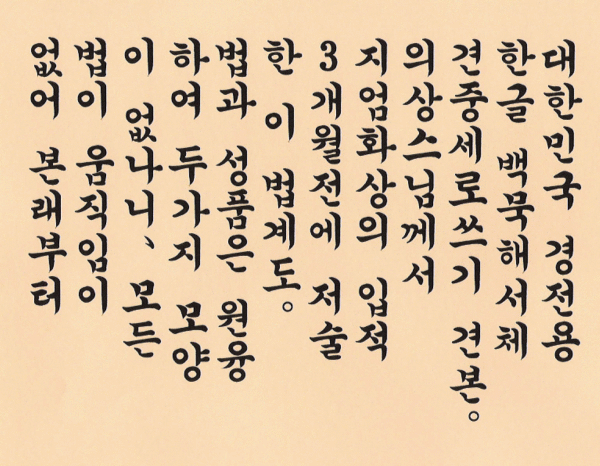 대한민국 경전용
한글 백묵해서체
견중세로쓰기 견본。
의상스님께서
지엄화상의 입적
3개월전에 저술
한 이 법계도。
법과 성품은 원융
하여 두가지 모양
이 없나니、모든
법이 움직임이
없어 본래부터